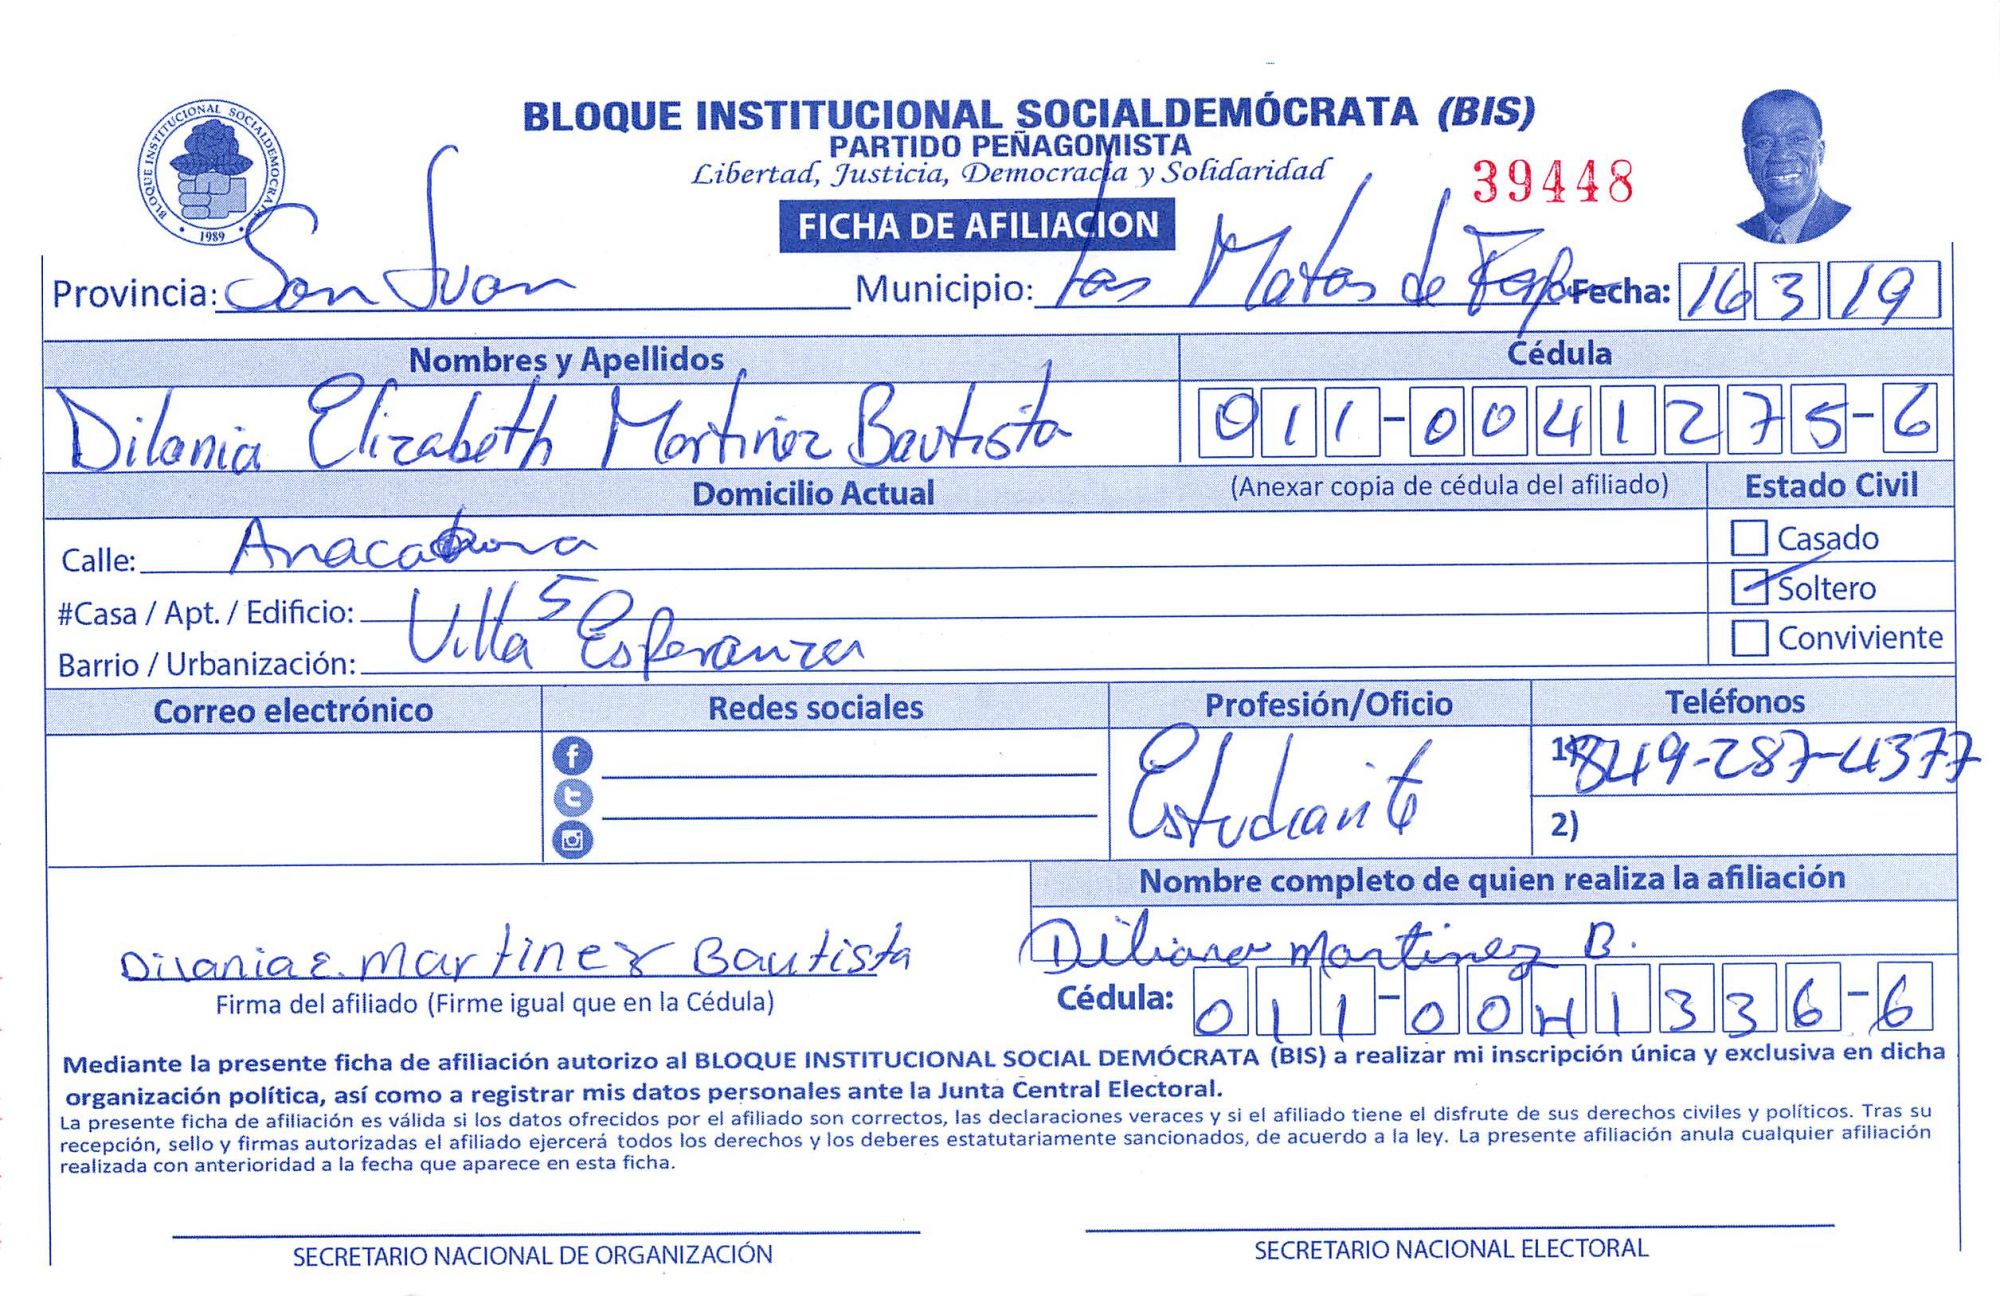 BLOQUE INSTITUCIONAL SOCIALDEMÓCRATA (BIS)
PARTIDO PEÑAGOMISTA
Libertad, Justicia, Democracia y Solidaridad
39448
BLOQUE INSTITUCIONAL SOCIALDEMOCRATA
1989
FICHA DE AFILIACION
Provincia: San Juan Municipio: Las Matas de Fecha: 16 3 19
Nombres y Apellidos Cédula
Dilania Elizabeth Martinez Bautista 011-0041275-6
Domicilio Actual (Anexar copia de cédula del afiliado) Estado Civil
Calle: Casado
#Casa / Apt. / Edificio: 5 Soltero
Barrio / Urbanización: Villa Esperanza Conviviente
Correo electrónico Redes sociales Profesión/Oficio Teléfonos
Estudiante 1) 849-287-4377
2)
Nombre completo de quien realiza la afiliación
Diliana Martinez B.
Dilania E. Martinez Bautista
Firma del afiliado (Firme igual que en la Cédula) Cédula: 011-0041336-6
Mediante la presente ficha de afiliación autorizo al BLOQUE INSTITUCIONAL SOCIAL DEMÓCRATA (BIS) a realizar mi inscripción única y exclusiva en dicha
organización política, así como a registrar mis datos personales ante la Junta Central Electoral.
La presente ficha de afiliación es válida si los datos ofrecidos por el afiliado son correctos, las declaraciones veraces y si el afiliado tiene el disfrute de sus derechos civiles y políticos. Tras su
recepción, sello y firmas autorizadas el afiliado ejercerá todos los derechos y los deberes estatutariamente sancionados, de acuerdo a la ley. La presente afiliación anula cualquier afiliación
realizada con anterioridad a la fecha que aparece en esta ficha.
SECRETARIO NACIONAL DE ORGANIZACIÓN SECRETARIO NACIONAL ELECTORAL